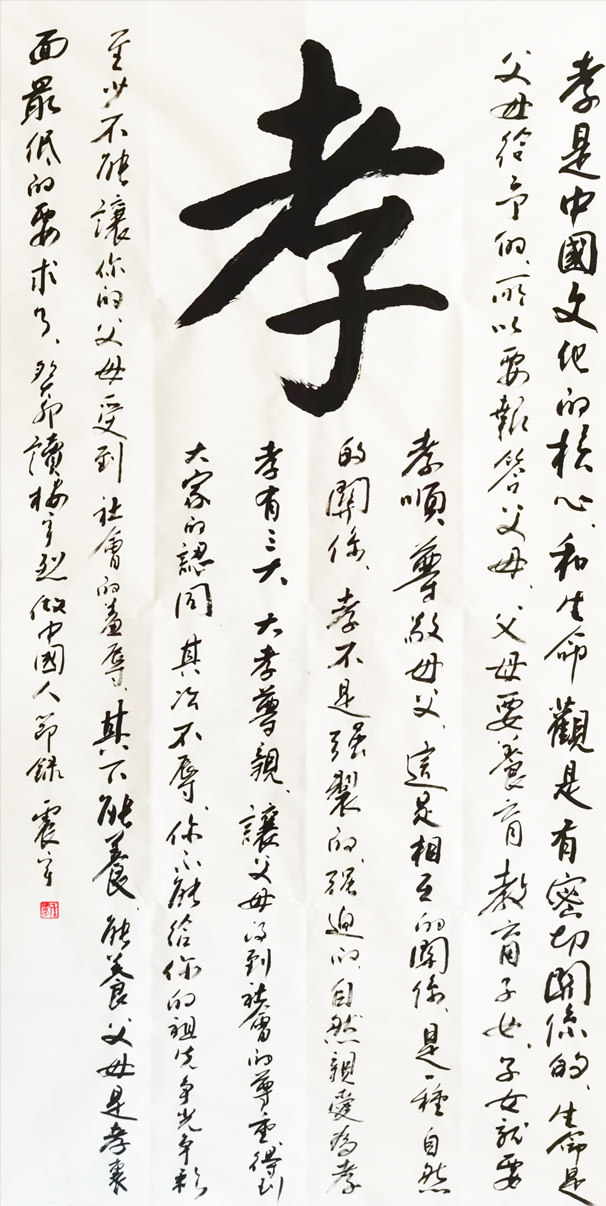 孝
孝是中國文化的核心、和生命觀是有密切關係的、生命是
父母給予的、所以要報答父母、父母要養育教育子女、子女就要
孝順、尊敬母父、這是相互的關係、是一種自然
的關係、孝不是强製的、强迫的、自然親愛為孝
孝有三大、大孝尊親、讓父母得到社會的尊重、得到
大家的認同、其次不辱、你不能給你的祖先争光争彩
至少不能讓你的父母受到社會的羞辱、其下能養、能養父母是孝裏
面最低的要求了、癸卯讀樓宇烈做中國人節録 震宇